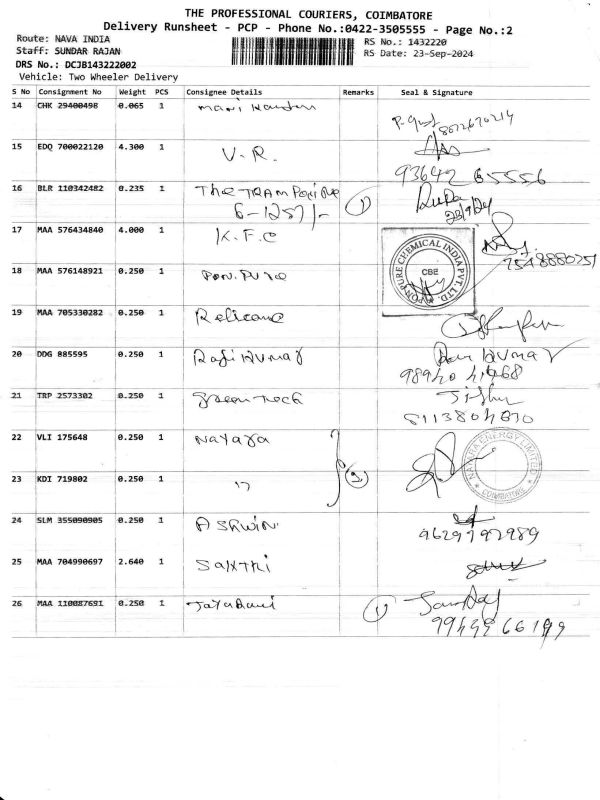 THE PROFESSIONAL COURIERS, COIMBATORE
Delivery Runsheet - PCP - Phone No.:0422-3505555 - Page No.:2
Route: NAVA INDIA
RS No.: 1432220
Staff: SUNDAR RAJAN
RS Date: 23-Sep-2024
DRS No.: DCJB143222002
Vehicle: Two Wheeler Delivery
S No Consignment No Weight PCS Consignee Details Remarks Seal & Signature
14 CHK 29400498 0.065 1 mani
15 EDQ 700022120 4.300 1 V.R.
93642 65556
16 BLR 110342482 0.235 1 The
6-1257/- 1
23/9/24
17 MAA 576434840 4.000 1 K.F.C
PON PURE CHEMICAL INDIA PVT. LTD.
CBE
18 MAA 576148921 0.250 1 PON.PURE
19 MAA 705330282 0.250 1 Reliance
20 DDG 885595 0.250 1 Rajikumar
21 TRP 2573302 0.250 1 green tech
22 VLI 175648 0.250 1 Nayara
NAYARA ENERGY LIMITED
COIMBATORE
23 KDI 719802 0.250 1 " 2
24 SLM 355090905 0.250 1 ASRWIN
9629792989
25 MAA 704990697 2.640 1 SANTHI
26 MAA 110087691 0.250 1 1